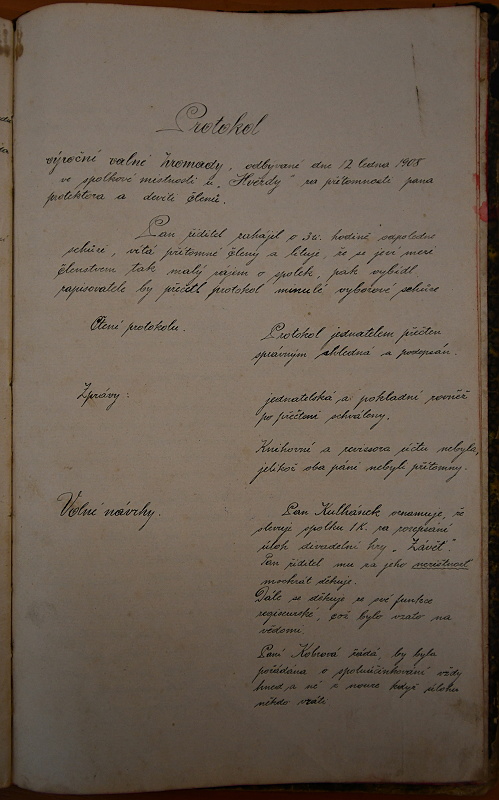 Protokol
výroční valné hromady, odbývané dne 12 ledna 1908
ve spolkové místnosti u „Hvězdy" za přítomnosti pana
protektora a devíti členů.
Pan ředitel zahájil o 3ti. hodině odpoledne
schůzi, vítá přítomné členy a lituje, že se jeví mezi
členstvem tak malý zájem o spolek, pak vybídl
zapisovatele by přečetl protokol minulé výborové schůze
Čtení protokolu.
Protokol jednatelem přečten
správným shledán a podepsán.
Zprávy:
jednatelská a pokladní rovněž
po přečtení schváleny.
Knihovní a revisora účtu nebyla,
jelikož oba páni nebyli přítomny.
Volné návrhy.
Pan Kulhánek oznamuje, že
slevuje spolku 1 K. za rozepsání
úloh divadelní hry „Závěť".
Pan ředitel mu za jeho nezištnost
mockrát děkuje.
Dále se děkuje ze své funkce
regiseurské, což bylo vzato na
vědomí.
Paní Kobrová žádá, by byla
požádána o spoluúčinkování vždy
hned a né z nouze když úlohu
někdo vrátí